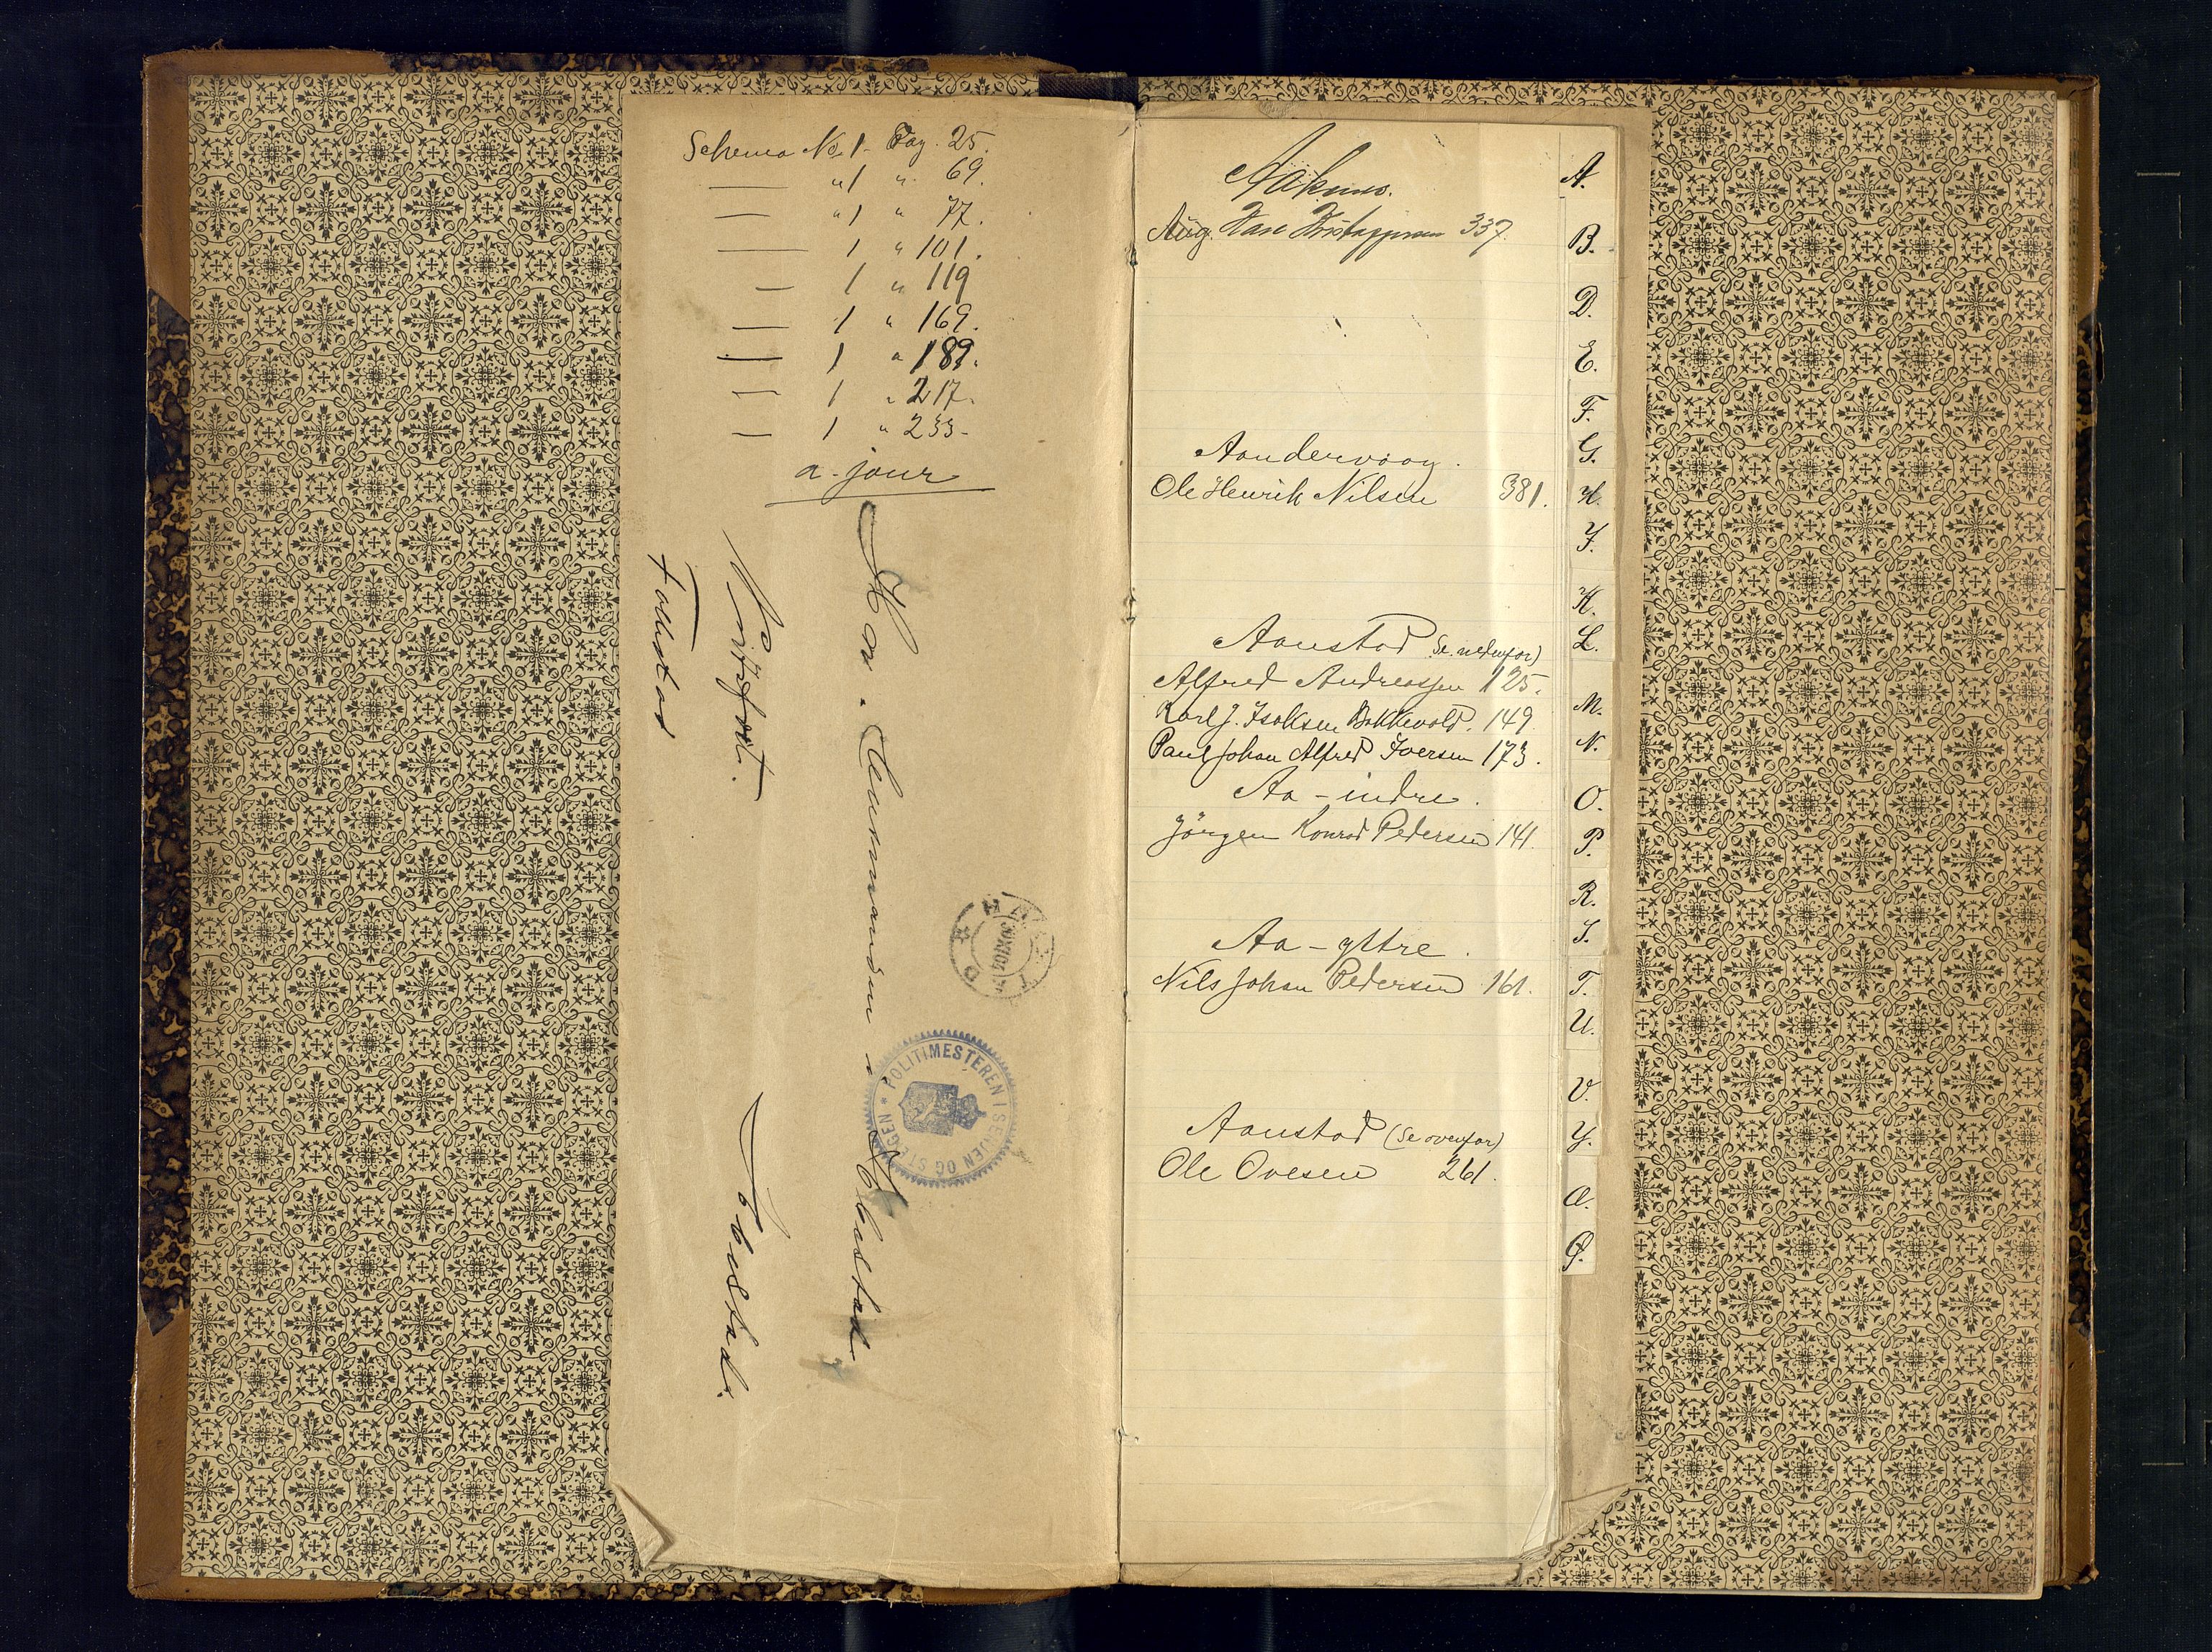 Schema No. 1. Pag. 25.
— " 1 " 69.
— " 1 " 77.
— 1 " 101.
— 1 " 119
— 1 " 169.
— 1 " 189.
— 1 " 217.
— 1 " 233.
a-jour
Hr. Lensmanden i
Ibestad.
POLITIMESTEREN I SENJEN OG
Aaknes.
Aug. 337
Aandervaag.
Ole Henrik Nilsen 381.
Aanstad (Se nedenfor)
Alfred Andreassen 125.
Karl J. Isaksen Bakkevold. 149
Paul Johan Alfred Iversen 173.
Aa - indre.
Jörgen Konrad Pedersen 141.
Aa - yttre.
Nils Johan Pedersen 161.
Aanstad (Se ovenfor)
Ole Ovesen 261.
A.
B.
D.
E.
F.
G.
H.
J.
K.
L.
M.
N.
O.
P.
R.
S.
T.
U.
V.
Y.
Æ.
Ø.